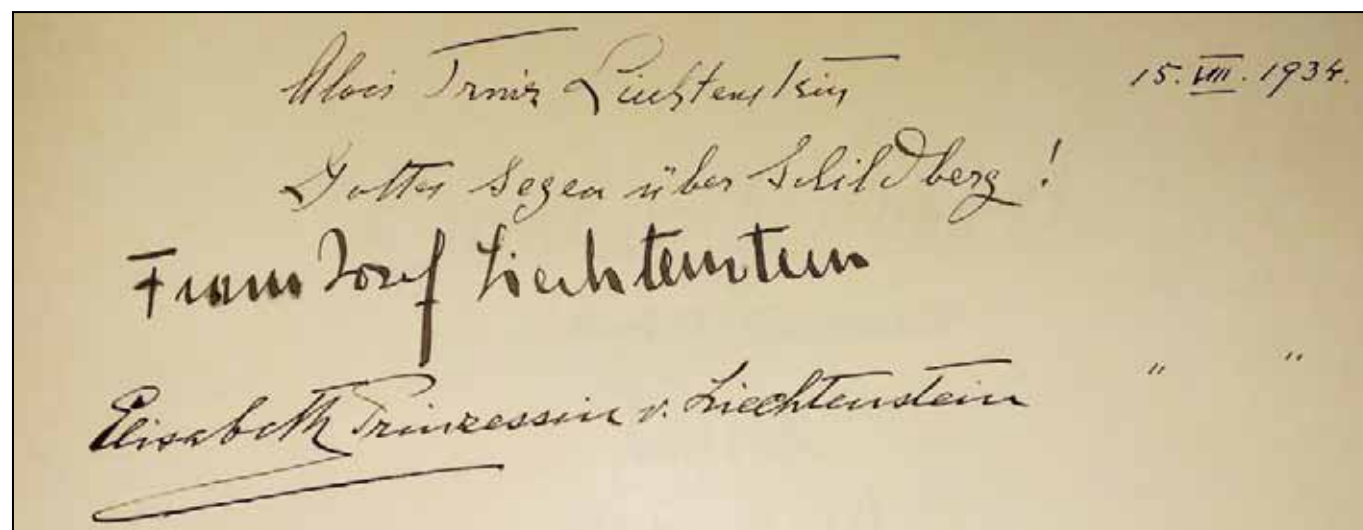 Alois Prinz Liechtenstein 15. VIII. 1934.
Gottes Segen über Schildberg!
Franz Josef Liechtenstein
Elisabeth Prinzessin v. Liechtenstein " "